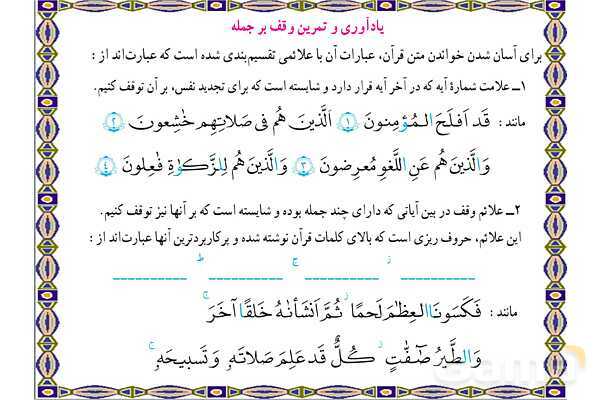 یادآوری و تمرین وقف بر جمله
برای آسان شدن خواندن متن قرآن، عبارات آن با علائمی تقسیم‌بندی شده است که عبارت‌اند از :
۱ــ علامت شمارهٔ آیه که در آخر آیه قرار دارد و شایسته است که برای تجدید نفس، بر آن توقف کنیم.
مانند : قَد اَفلَحَ المُؤمِنونَ ﴿۱﴾ اَلَّذینَ هُم فی صَلاتِهِم خٰشِعونَ ﴿۲﴾
وَ الَّذینَ هُم عَنِ اللَّغوِ مُعرِضونَ ﴿۳﴾ وَ الَّذینَ هُم لِلزَّکوٰةِ فٰعِلونَ ﴿۴﴾
۲ــ علائم وقف در بین آیاتی که دارای چند جمله بوده و شایسته است که بر آنها نیز توقف کنیم.
این علائم، حروف ریزی است که بالای کلمات قرآن نوشته شده و پرکاربردترین آنها عبارت‌اند از :
ز ج ط
مانند : فَکَسَونَا العِظٰمَ لَحمًا ز ثُمَّ اَنشَأنٰهُ خَلقًا آخَرَ ج
وَ الطَّیرُ صٰٓفّٰتٍ ز کُلٌّ قَد عَلِمَ صَلاتَهٗ وَ تَسبیحَهٗ ج
Gama